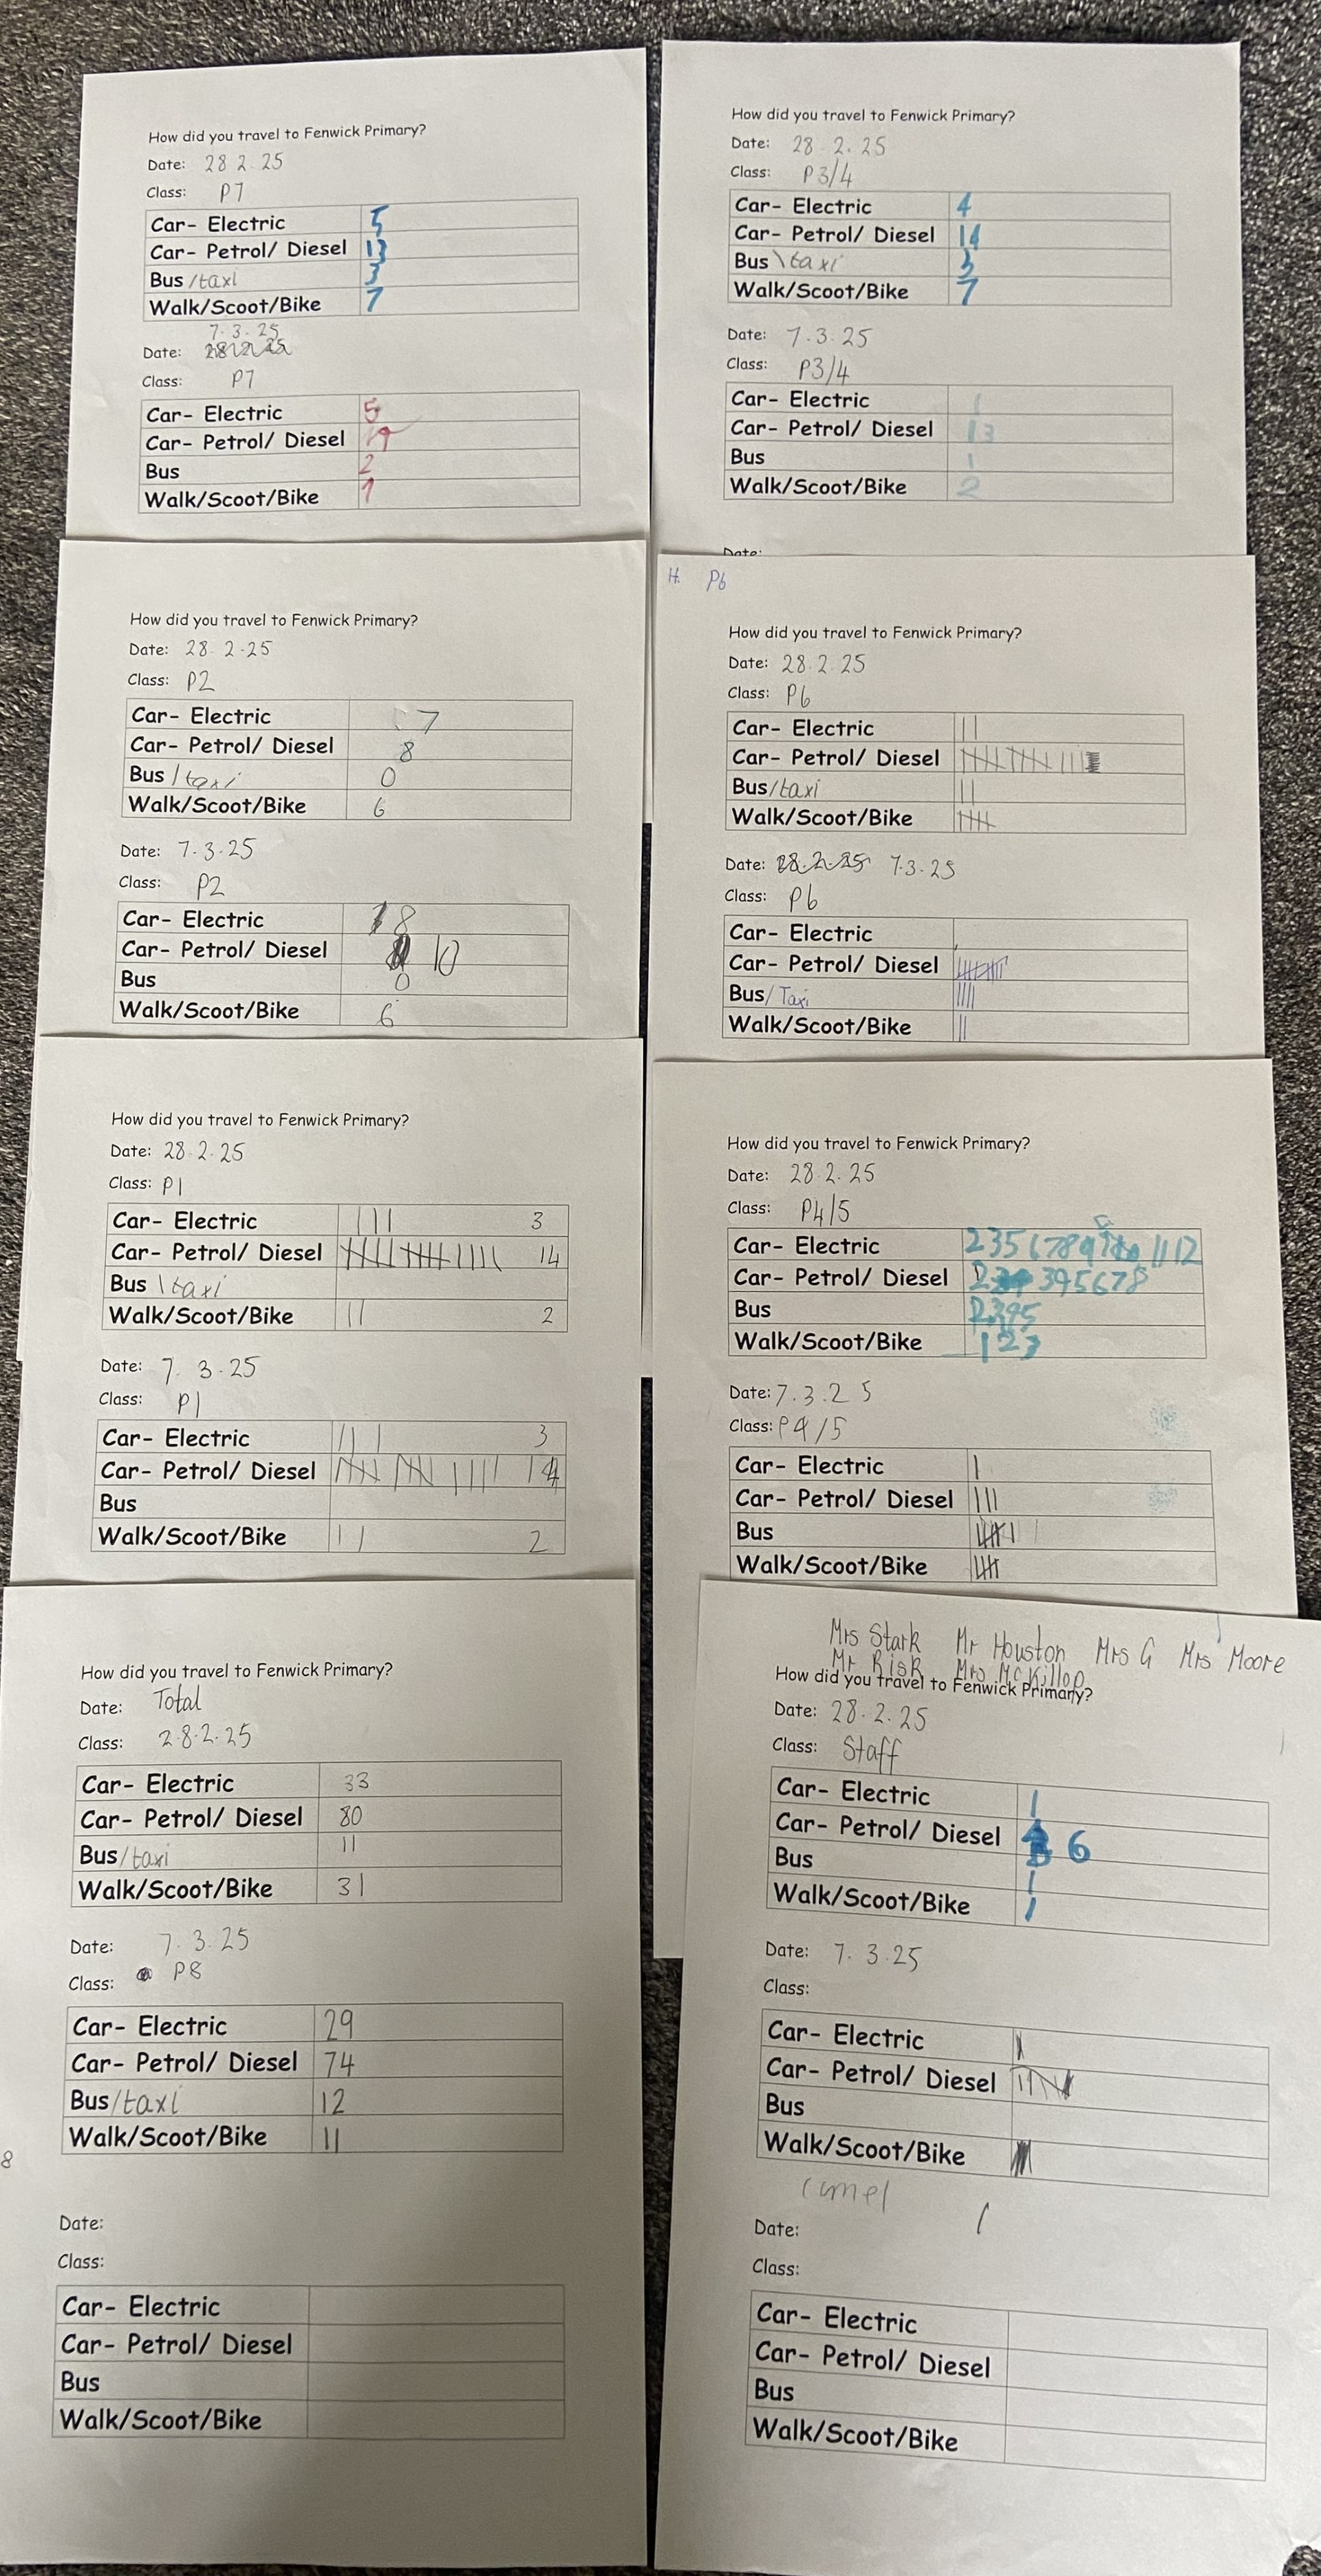 How did you travel to Fenwick Primary?
Date: 28 2. 25
Class: P7
Car- Electric 5
Car- Petrol/ Diesel 13
Bus /taxi 3
Walk/Scoot/Bike 7
7. 3. 25
Date:
Class: P7
Car- Electric 5
Car- Petrol/ Diesel
Bus 2
Walk/Scoot/Bike 1
How did you travel to Fenwick Primary?
Date: 28. 2. 25
Class: P3/4
Car- Electric 4
Car- Petrol/ Diesel 14
Bus \taxi 3
Walk/Scoot/Bike 7
Date: 7.3.25
Class: P3/4
Car- Electric 1
Car- Petrol/ Diesel 13
Bus 1
Walk/Scoot/Bike 2
Date:
How did you travel to Fenwick Primary?
Date: 28. 2.25
Class: P2
Car- Electric 7
Car- Petrol/ Diesel 8
Bus /taxi 0
Walk/Scoot/Bike 6
Date: 7.3.25
Class: P2
Car- Electric 8
Car- Petrol/ Diesel 10
Bus 0
Walk/Scoot/Bike 6
H. P6
How did you travel to Fenwick Primary?
Date: 28.2.25
Class: P6
Car- Electric
Car- Petrol/ Diesel
Bus/taxi
Walk/Scoot/Bike
Date: 28.2.25 7.3.25
Class: P6
Car- Electric
Car- Petrol/ Diesel
Bus/ Taxi
Walk/Scoot/Bike
How did you travel to Fenwick Primary?
Date: 28.2.25
Class: P1
Car- Electric 3
Car- Petrol/ Diesel 14
Bus \taxi
Walk/Scoot/Bike 2
Date: 7. 3.25
Class: P1
Car- Electric 3
Car- Petrol/ Diesel 14
Bus
Walk/Scoot/Bike 2
How did you travel to Fenwick Primary?
Date: 28.2.25
Class: P4/5
Car- Electric
Car- Petrol/ Diesel
Bus
Walk/Scoot/Bike 123
Date: 7.3.25
Class: P4/5
Car- Electric
Car- Petrol/ Diesel
Bus
Walk/Scoot/Bike
How did you travel to Fenwick Primary?
Date: Total
Class: 28.2.25
Car- Electric 33
Car- Petrol/ Diesel 80
Bus/taxi 11
Walk/Scoot/Bike 31
Date: 7.3.25
Class: P8
Car- Electric 29
Car- Petrol/ Diesel 74
Bus/taxi 12
Walk/Scoot/Bike 11
8
Date:
Class:
Car- Electric
Car- Petrol/ Diesel
Bus
Walk/Scoot/Bike
Mrs Stark Mr Houston Mrs G Mrs Moore
Mr Risk Mrs McKillop
How did you travel to Fenwick Primary?
Date: 28.2.25
Class: Staff
Car- Electric 1
Car- Petrol/ Diesel 6
Bus 1
Walk/Scoot/Bike 1
Date: 7.3.25
Class:
Car- Electric
Car- Petrol/ Diesel
Bus
Walk/Scoot/Bike
Date:
Class:
Car- Electric
Car- Petrol/ Diesel
Bus
Walk/Scoot/Bike